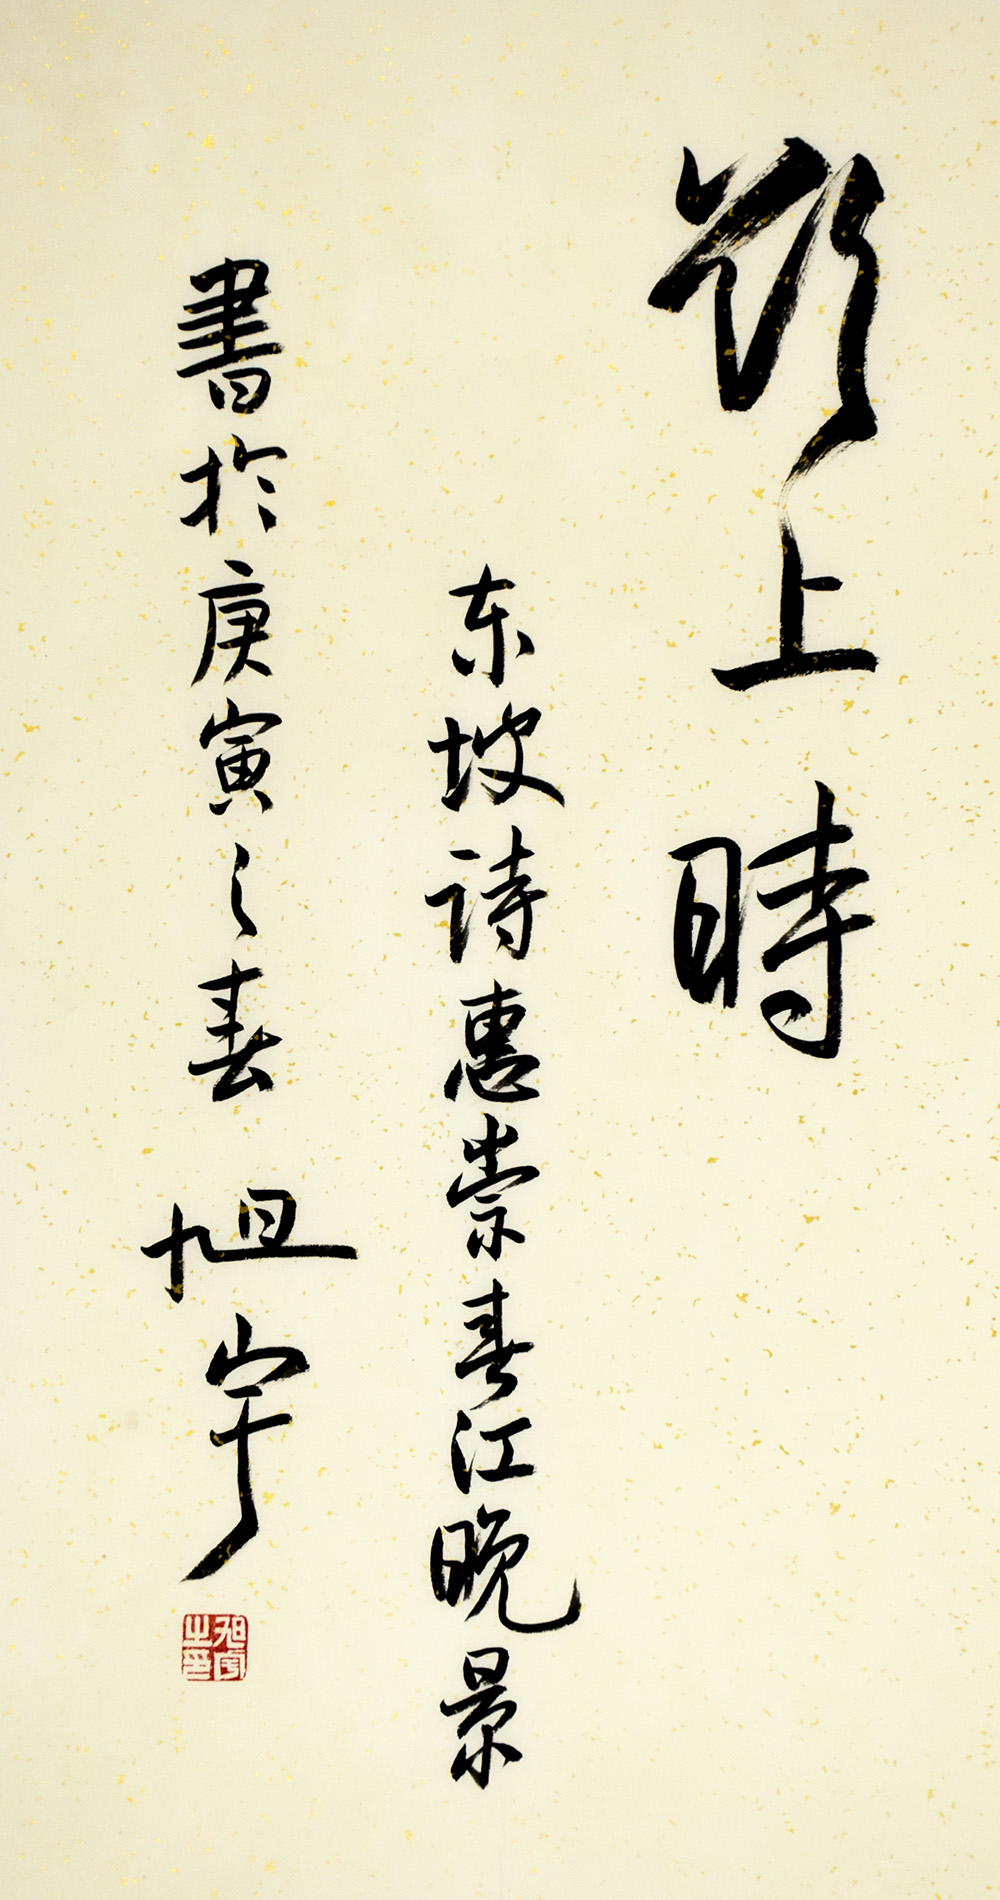 欲上時
东坡诗惠崇春江晚景
書於庚寅之春 旭宇
旭宇之印